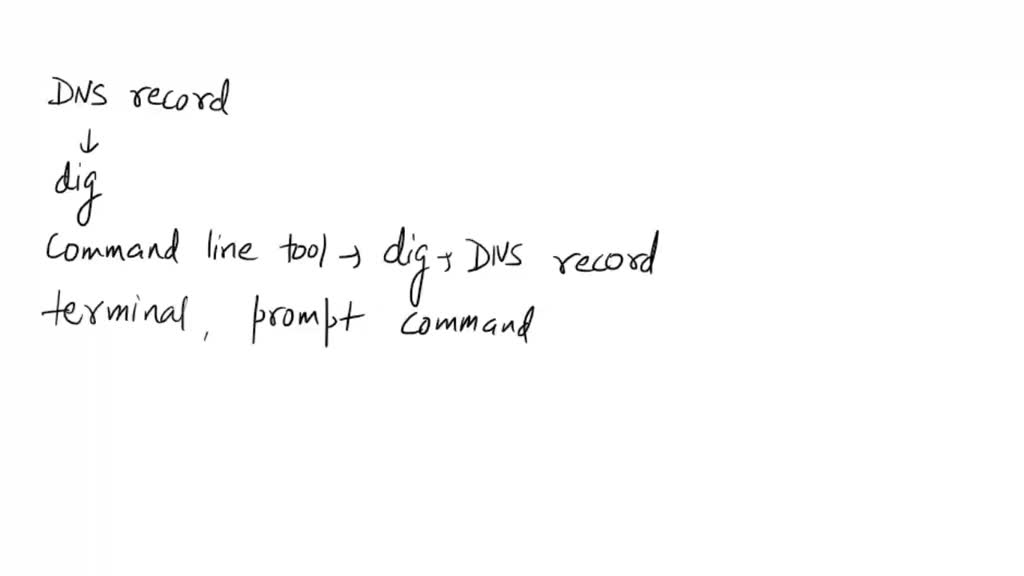 DNS record
↓
dig
Command line tool → dig → DNS record
terminal, prompt command